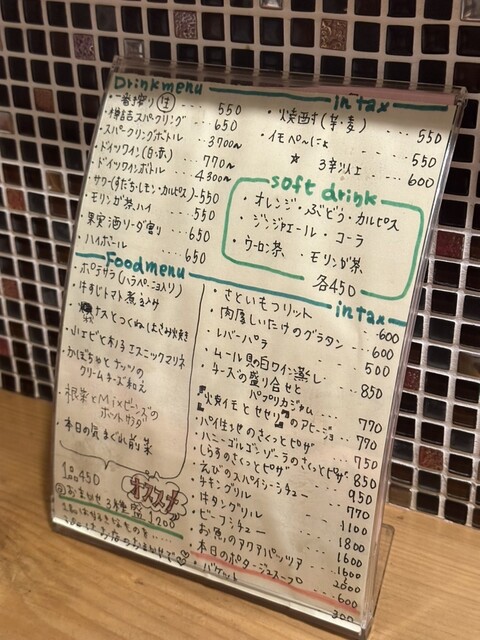 Drinkmenu in tax
・一番搾り 生 … 550
・樽詰スパークリング … 650
・スパークリングボトル … 3700〜
・ドイツワイン(白・赤) … 770〜
・ドイツワインボトル … 4300〜
・サワー(すだち・レモン・カルピス)-550
・モリンガ茶ハイ … 550
・果実酒ソーダ割り … 650
・ハイボール … 650
・焼酎(芋・麦) … 550
・イモベ〜にょ … 550
☆ 3杯以上 … 600
soft drink
・オレンジ・ぶどう・カルピス
・ジンジャエール・コーラ
・ウーロン茶 ・モリンガ茶
各450
Foodmenu in tax
・ポテサラ(ハラペーニョ入り)
・牛すじトマト煮込み
・ナスとつくねの上さみ焼き
・小エビと木ノ子エスニックマリネ
・かぼちゃとナッツの
クリームチーズ和え
・根菜とMixビーンズの
ホットサラダ
・本日の気まぐれ前菜
1品450
オススメ
おまかせ3種盛1200
・さといもフリット … 600
・肉厚しいたけのグラタン … 600
・レバーパテ … 500
・ムール貝の白ワイン蒸し … 850
・チーズの盛り合せと
パプリカジャム … 770
・『火焼イモとセセリ』のアヒージョ … 770
・パイ包みのさくっとピザ … 750
・ハニーゴルゴンゾーラのさくっとピザ … 850
・しらすのさくっとピザ … 950
・えびのスパイシーシチュー … 770
・チキングリル … 1100
・牛タングリル … 1800
・ビーフシチュー … 1600
・お魚のアクアパッツァ … 2000
・本日のポタージュスープ … 600
・バケット … 300